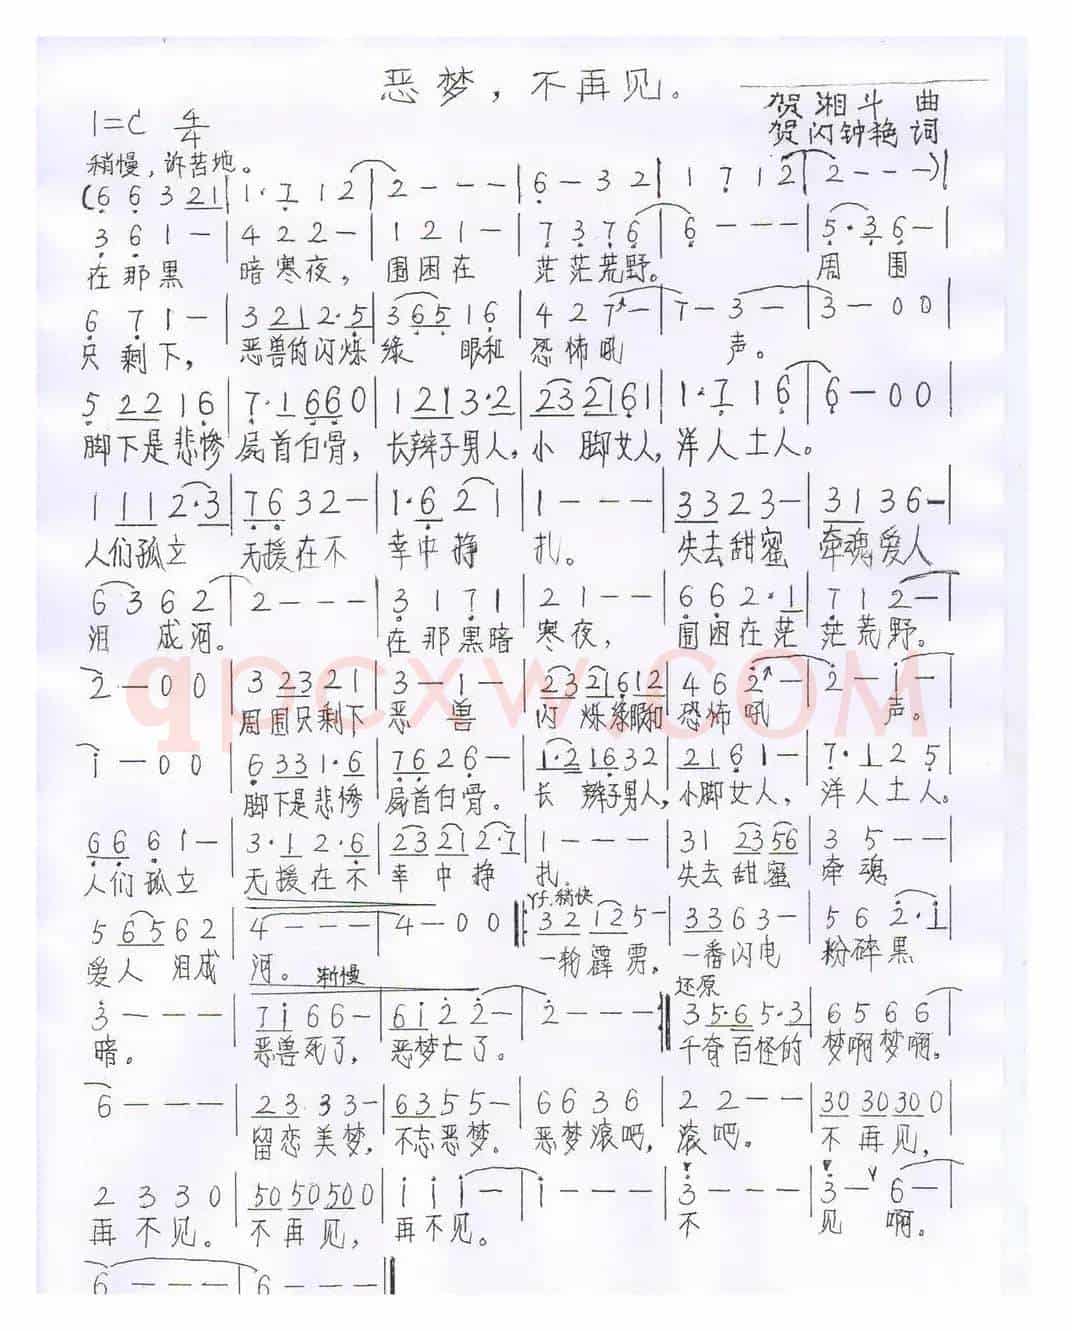 恶梦，不再见。
贺湘斗 曲
1=C 4/4
贺闪钟艳 词
稍慢，诉苦地。
(6 6 3 21 | 1· 7 1 2 | 2 - - - | 6 - 3 2 | 1 7 1 2 | 2 - - -) |
3 6 1 - | 4 2 2 - | 1 2 1 - | 7 3 7 6 | 6 - - - | 5· 3 6 - |
在那黑 暗寒夜， 围困在 茫茫荒野。 周 围
6 7 1 - | 3 21 2· 5 | 3 65 1 6 | 4 2 7 - | 7 - 3 - | 3 - 0 0 |
只剩下， 恶兽的闪烁 绿 眼和 恐怖吼 声。
5 22 1 6 | 7· 1 66 0 | 1 21 3· 2 | 23 21 6 1 | 1· 7 1 6 | 6 - 0 0 |
脚下是悲惨 屍首白骨， 长辫子男人， 小 脚女人， 洋人土人。
1 11 2· 3 | 76 3 2 - | 1· 6 2 1 | 1 - - - | 33 2 3 - | 31 3 6 - |
人们孤立 无援在不 幸中挣 扎。 失去甜蜜 牵魂爱人
6 3 6 2 | 2 - - - | 3 1 7 1 | 2 1 - - | 6 6 2· 1 | 7 1 2 - |
泪 成河。 在那黑暗 寒夜， 围困在茫 茫荒野。
qpcxw.com
2 - 0 0 | 3 23 2 1 | 3 - 1 - | 23 21 6 12 | 4 6 2 - | 2 - i - |
周围只剩下 恶 兽 闪 烁绿眼和 恐怖吼 声。
i - 0 0 | 6 33 1· 6 | 76 2 6 - | 1· 2 16 3 2 | 21 6 1 - | 7· 1 2 5 |
脚下是悲惨 屍首白骨。 长 辫子男人， 小脚女人， 洋人土人。
66 6 1 - | 3· 1 2· 6 | 23 21 2· 7 | 1 - - - | 3 1 23 56 | 3 5 - - |
人们孤立 无援在不 幸 中 挣 扎。 失去甜蜜 牵魂
稍快
5 65 6 2 | 4 - - - | 4 - 0 0 |: 32 12 5 - | 33 6 3 - | 5 6 2· i |
爱人 泪成 河。 一轮霹雳， 一番闪电 粉碎黑
渐慢 还原
3 - - - | 7i 6 6 - | 6i 2 2 - | 2 - - - :| 3 5· 6 5· 3 | 6 5 6 6 |
暗。 恶兽死了， 恶梦亡了。 千奇百怪的 梦啊梦啊，
6 - - - | 23 3 3 - | 63 5 5 - | 6 6 3 6 | 2 2 - - | 30 30 30 0 |
留恋美梦， 不忘恶梦。 恶梦滚吧， 滚吧。 不再见，
2 3 3 0 | 50 50 50 0 | i i i - | i - - - | 3 - - - | 3 - 6 - |
再不见。 不再见， 再不见。 不 见 啊。
6 - - - | 6 - - - ||